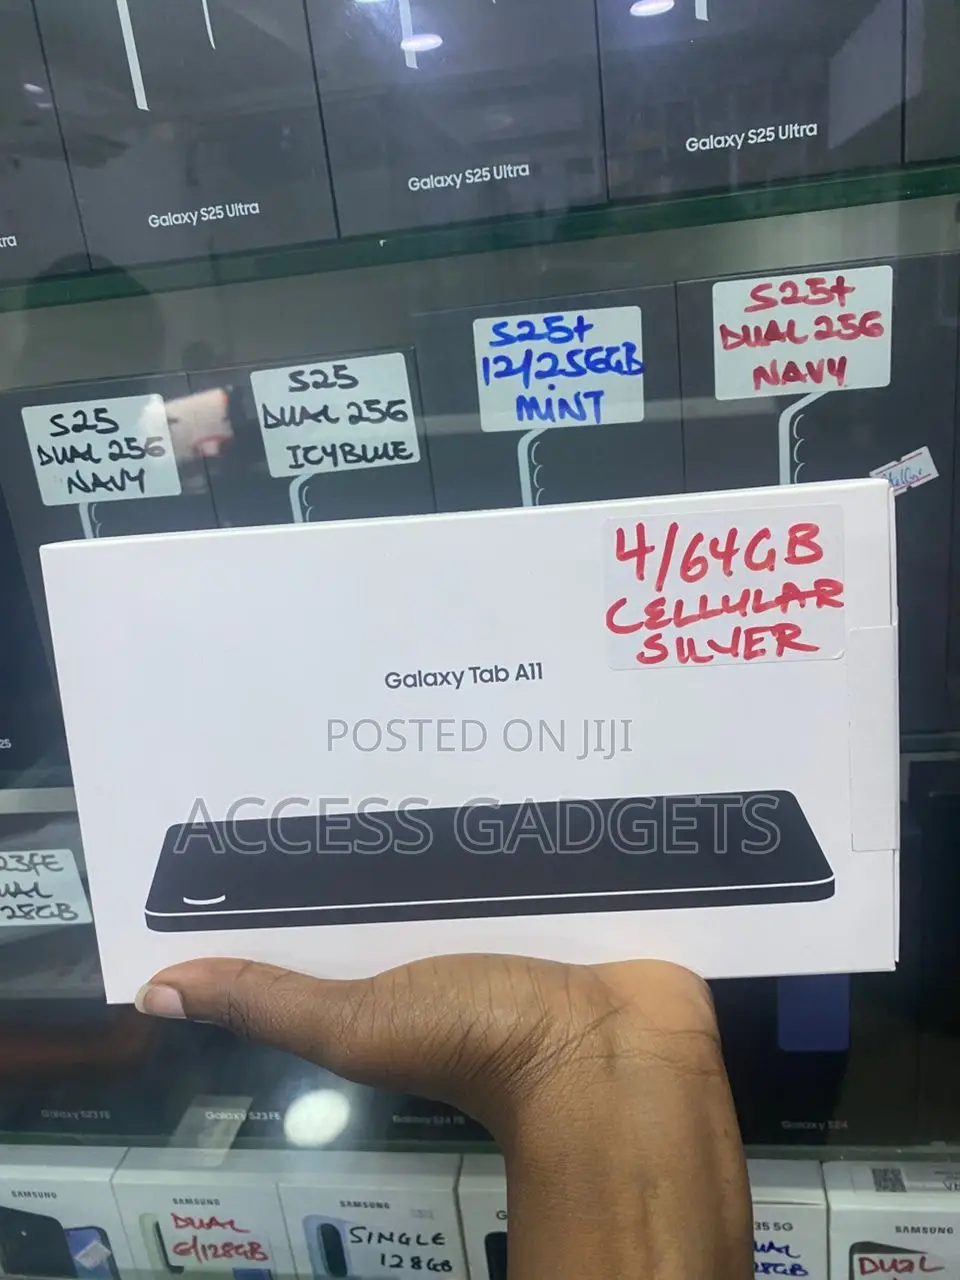 Galaxy S25 Ultra
Galaxy S25 Ultra
Galaxy S25 Ultra
S25
DUAL 256
NAVY
S25
DUAL 256
ICYBLUE
S25+
12/256GB
MINT
S25+
DUAL 256
NAVY
4/64GB
CELLULAR
SILVER
Galaxy Tab A11
POSTED ON JIJI
ACCESS GADGETS
Galaxy S23 FE
Galaxy S23 FE
Galaxy S24 FE
Galaxy S24
SAMSUNG
SAMSUNG
DUAL
6/128GB
SAMSUNG
SINGLE
128GB
SAMSUNG
DUAL